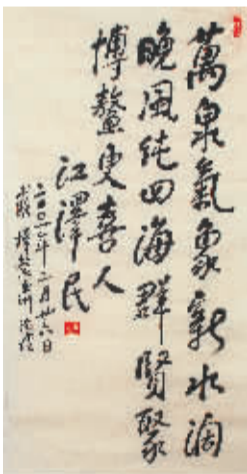 萬泉氣象新水闊
晚風純四海群賢聚
博鰲更喜人
江澤民
二〇〇一年二月廿六日